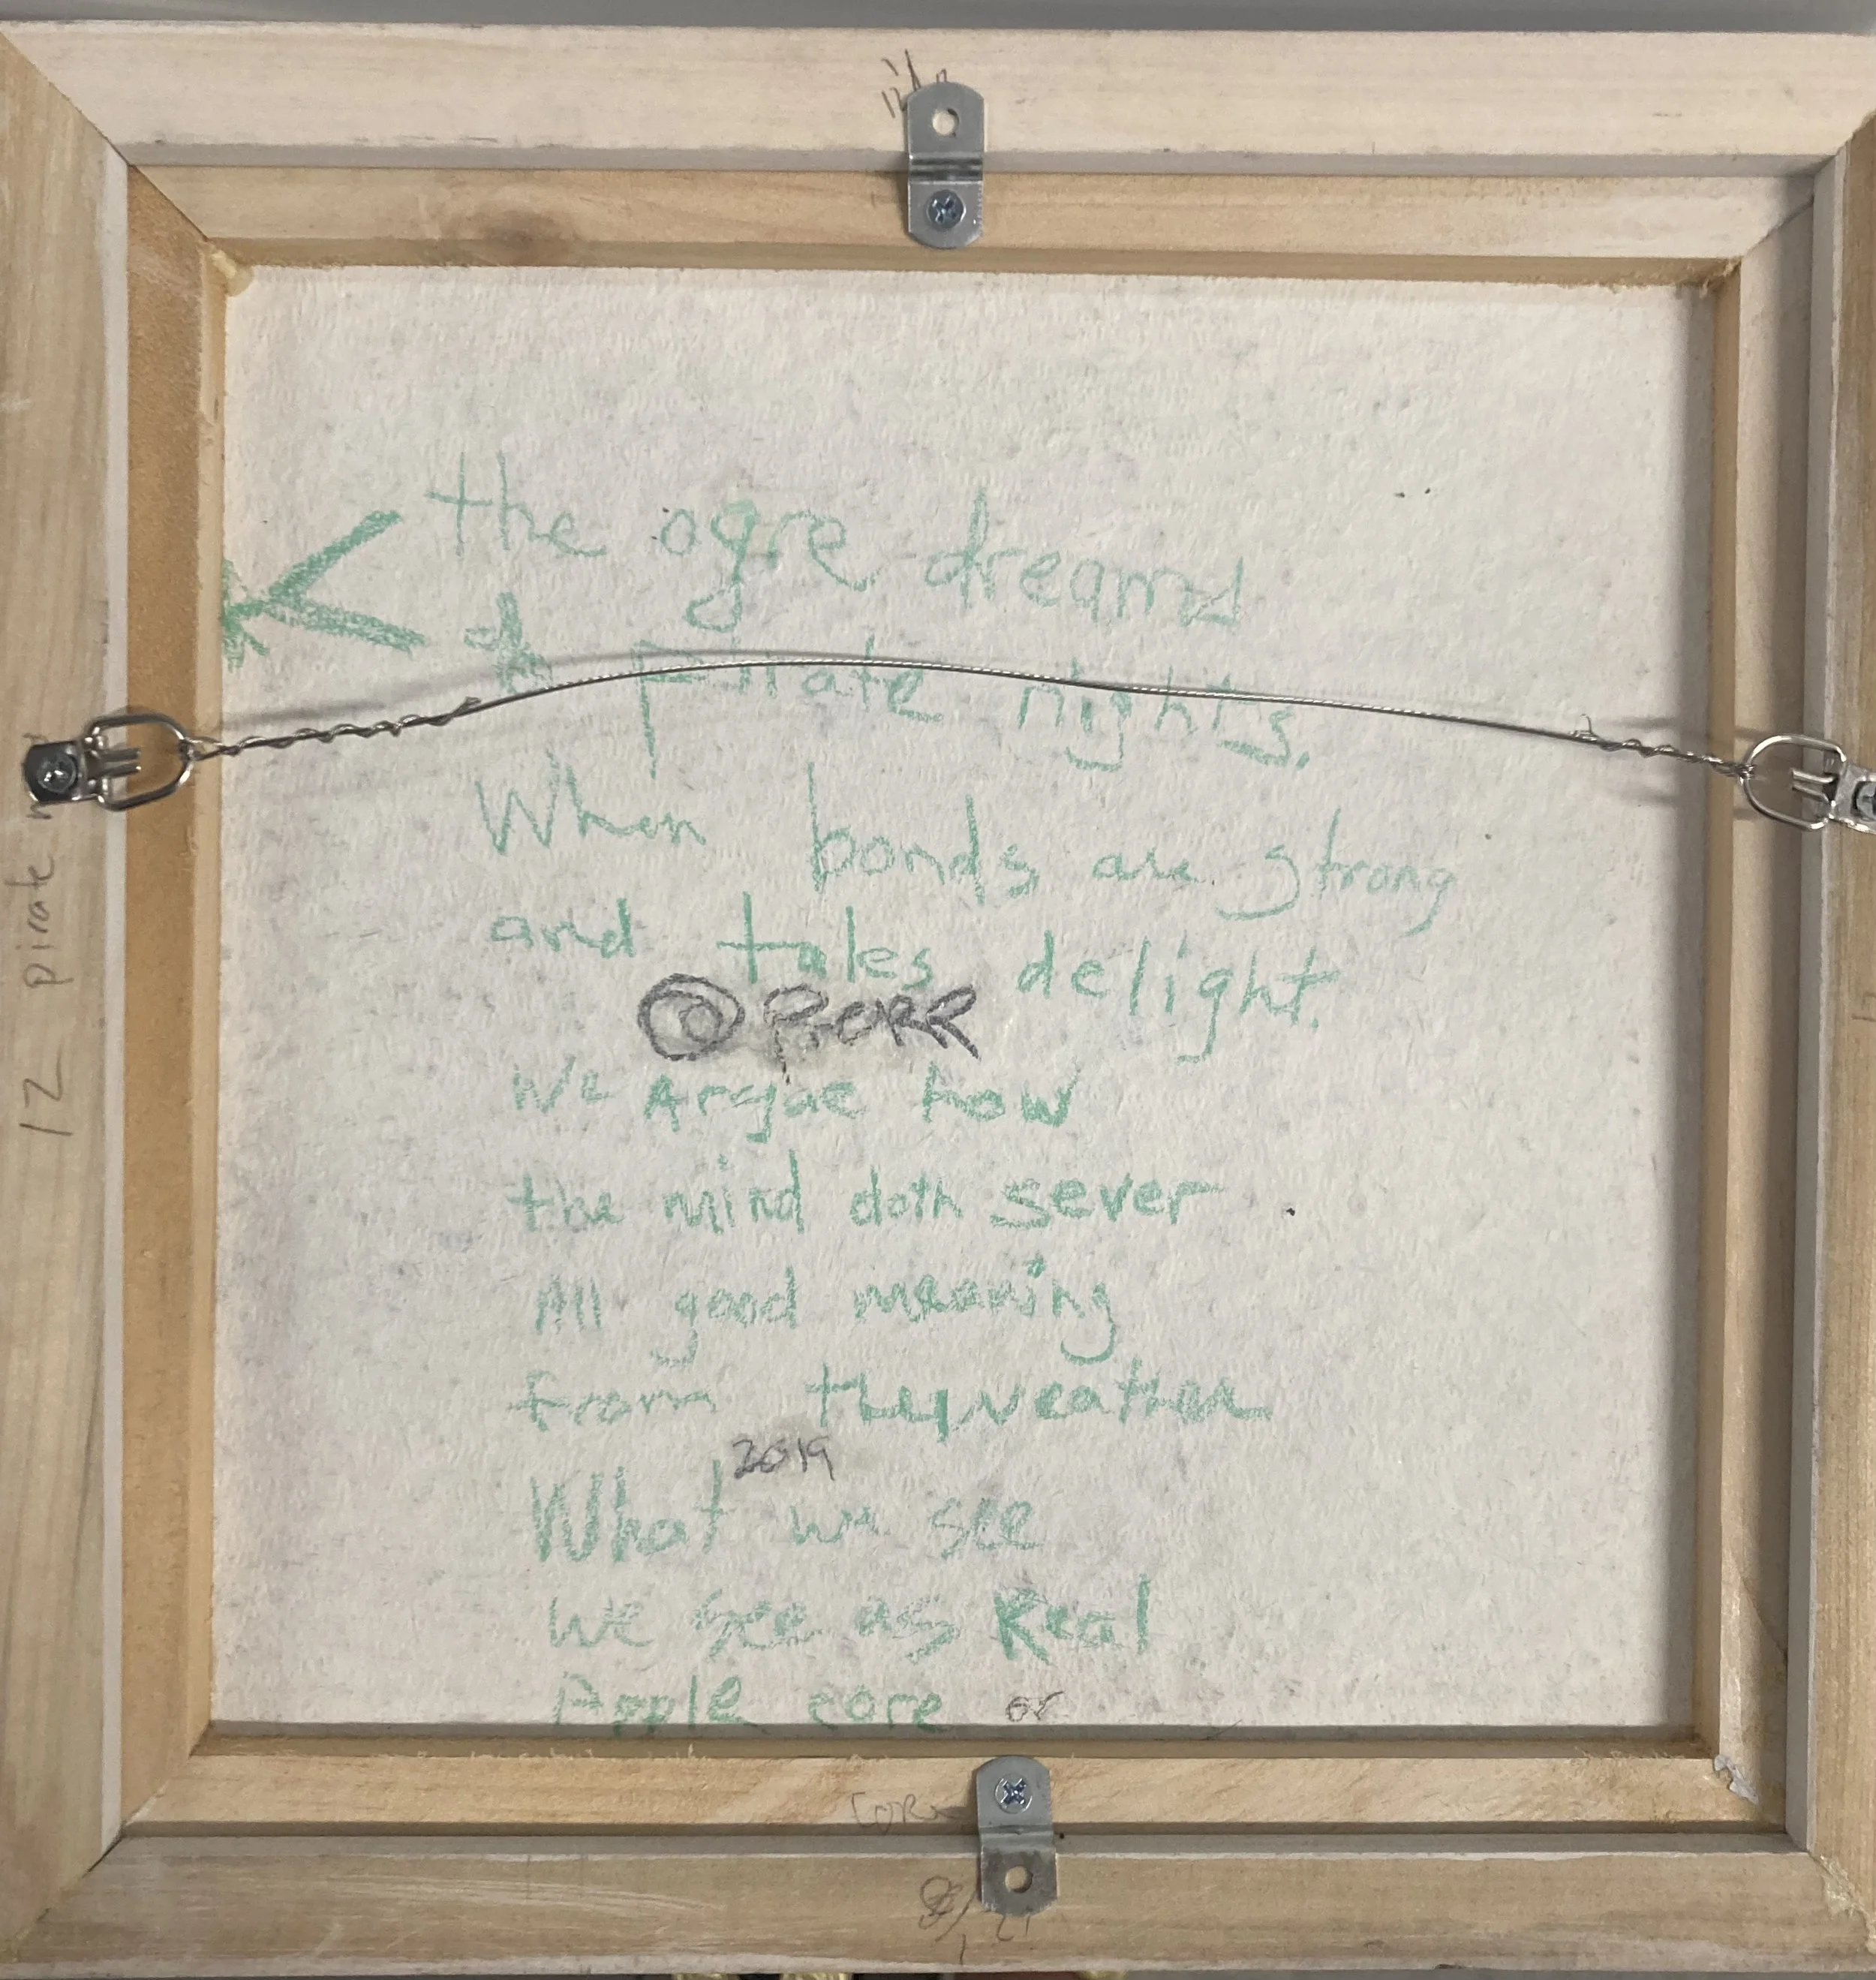 the ogre dreamd
of Pirate nights.
When bonds are strong
and tales delight.
we Argue how
the mind doth sever
All good meaning
from they weather
2019
What we see
we see as Real
Apple core or
12 pirate